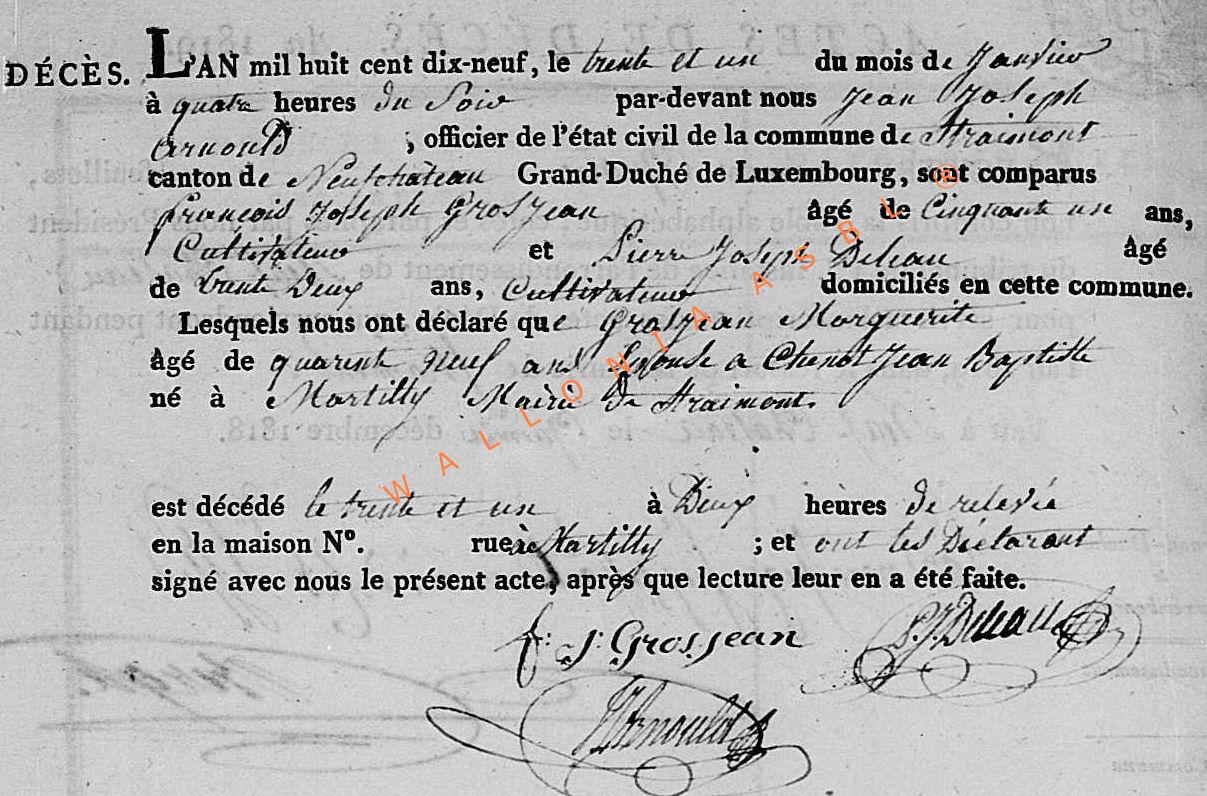 DÉCÈS. L'AN mil huit cent dix-neuf, le trente et un du mois de Janvier
à quatre heures du Soir par-devant nous Jean Joseph
Arnould ; officier de l'état civil de la commune de Straimont
canton de Neufchateau Grand-Duché de Luxembourg, sont comparus
francois Joseph Grosjean âgé de Cinquante un ans,
Cultivateur et Pierre Joseph âgé
de trente Deux ans, Cultivateur domiciliés en cette commune.
Lesquels nous ont déclaré que Grosjean Marguerite
âgé de quarent neuf ans Epouse a Jean Baptiste
né à Martilly Mairie de Straimont.
est décédé le trente et un à Deux heures de relevée
en la maison N°. rue à Martilly ; et ont les Déclarant
signé avec nous le présent acte, après que lecture leur en a été faite.
f: J: Grosjean P.J.
JJArnould
WALLONIA ASBL ®